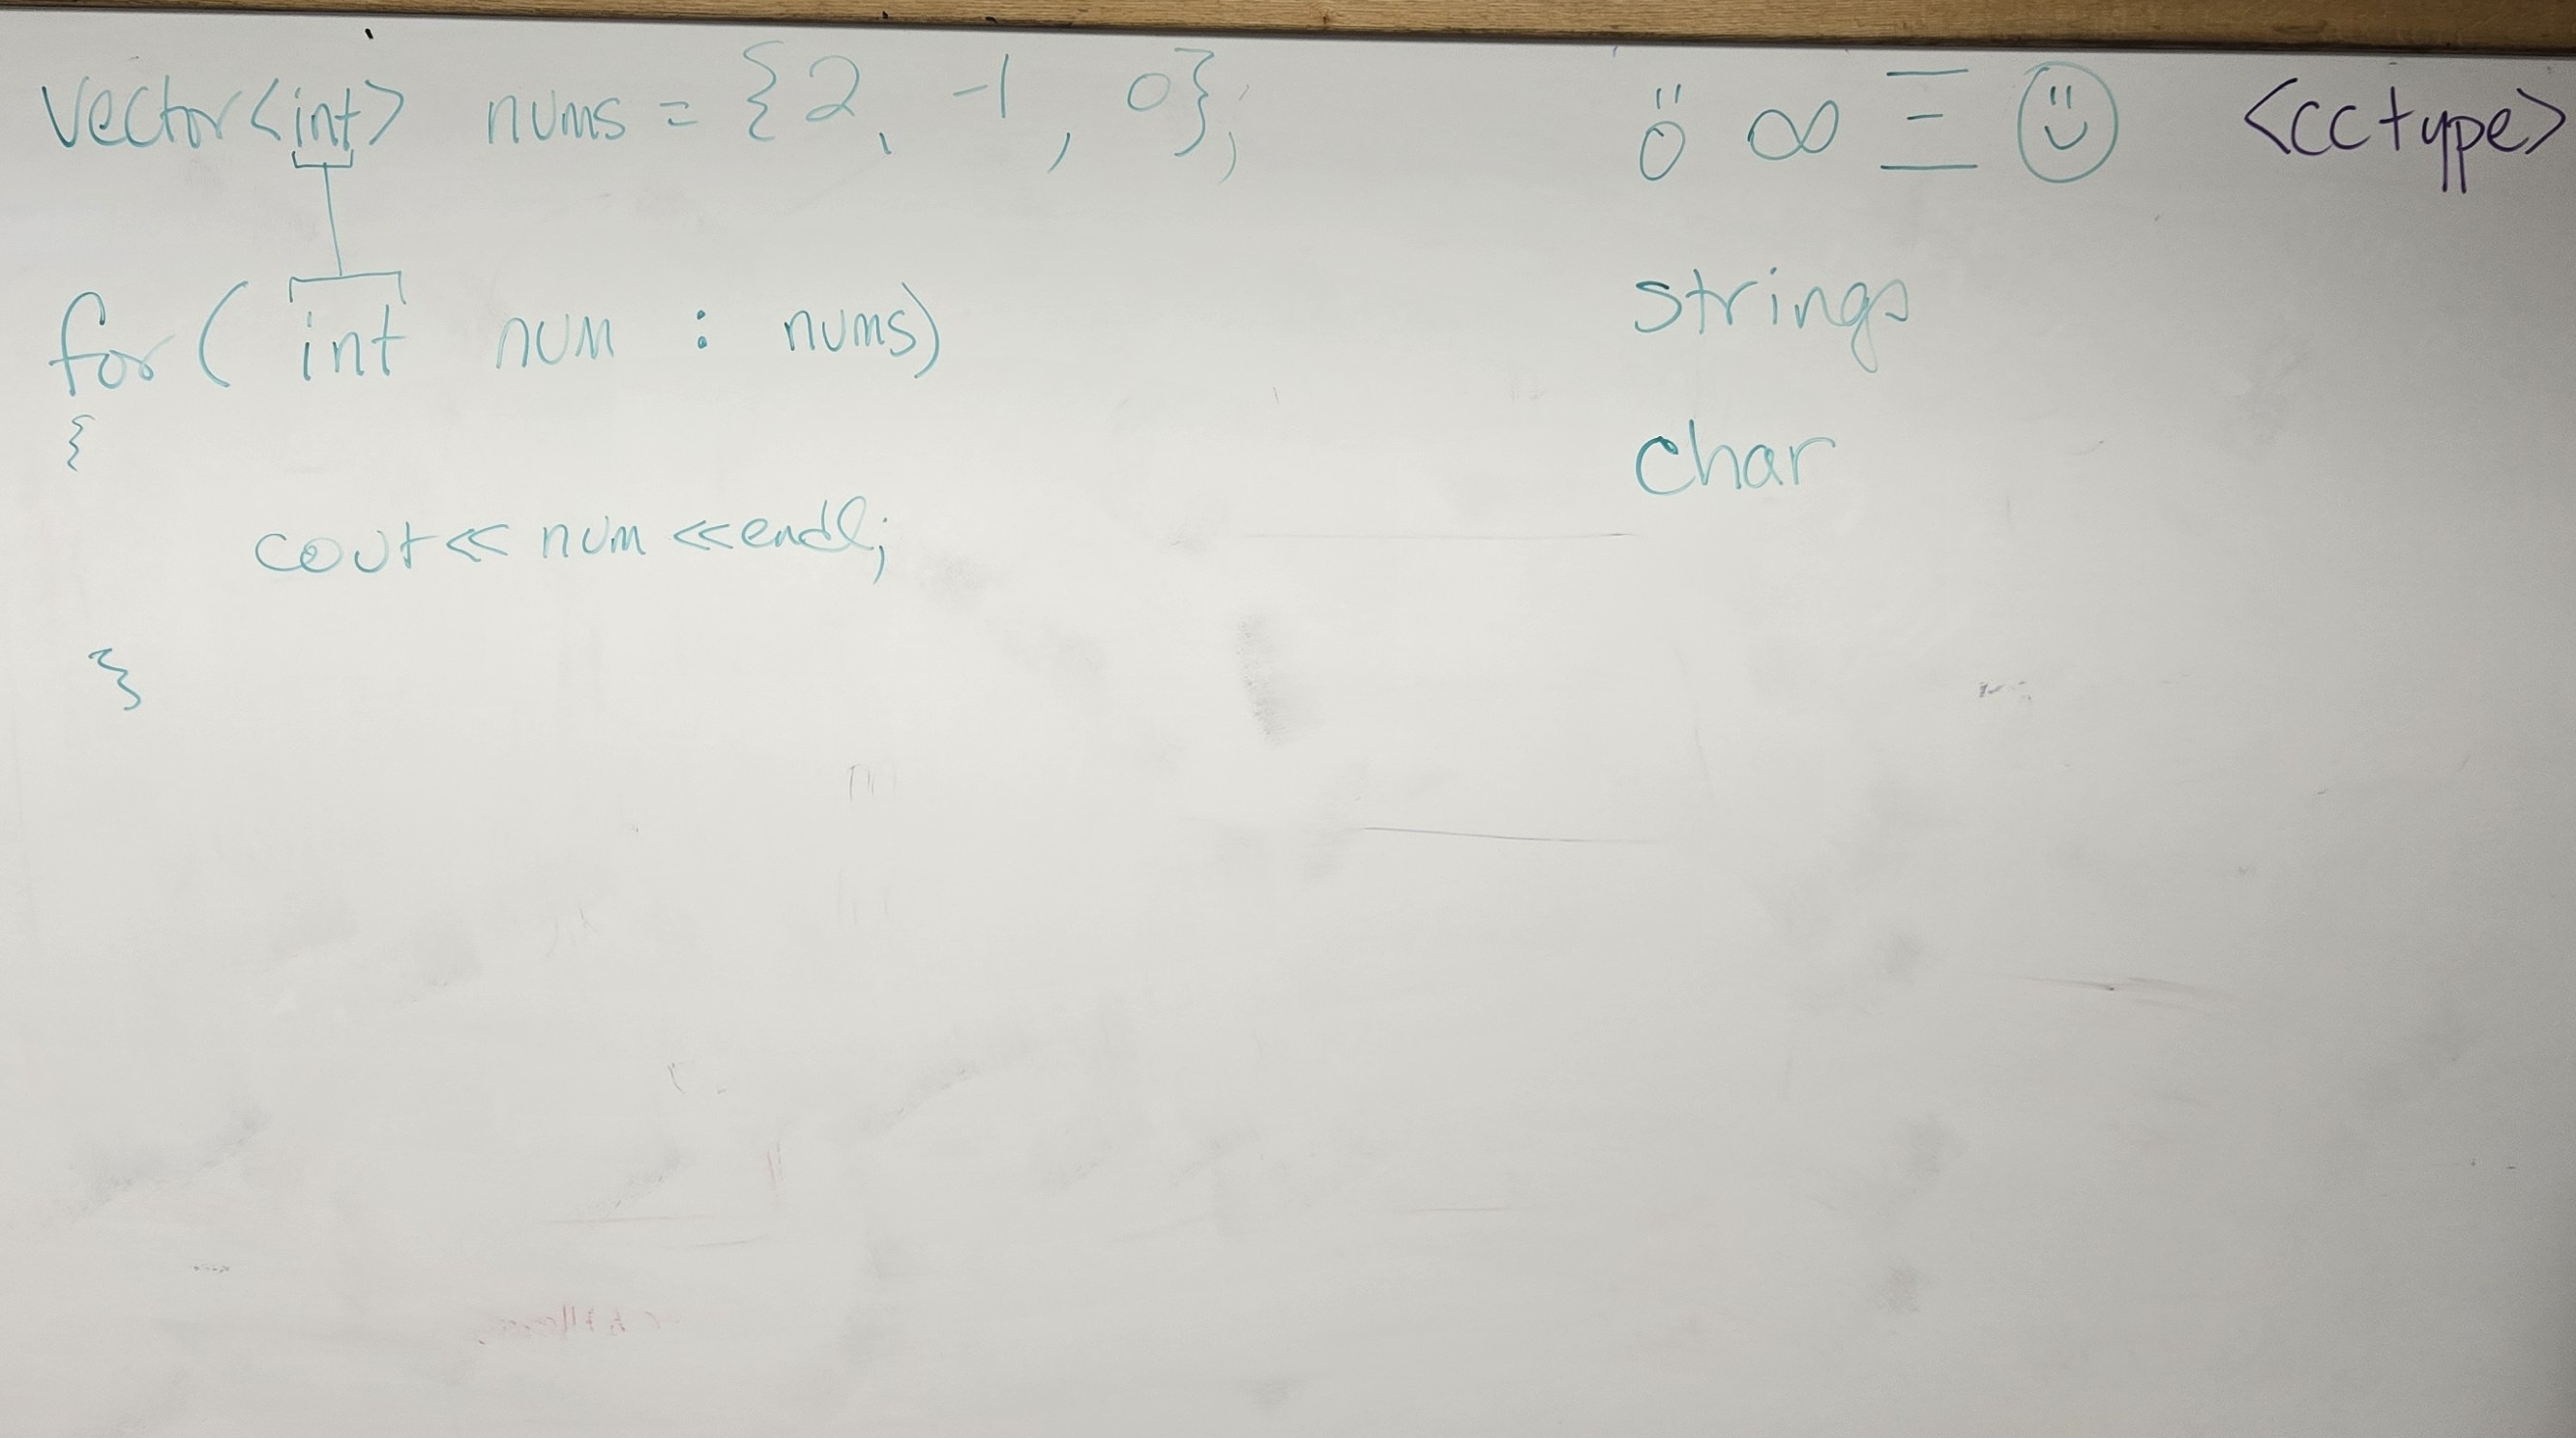 vector<int> nums = {2, -1, 0};
for( int num : nums)
{
cout<< num <<endl;
}
ö ∞ Ξ <cctype>
strings
char